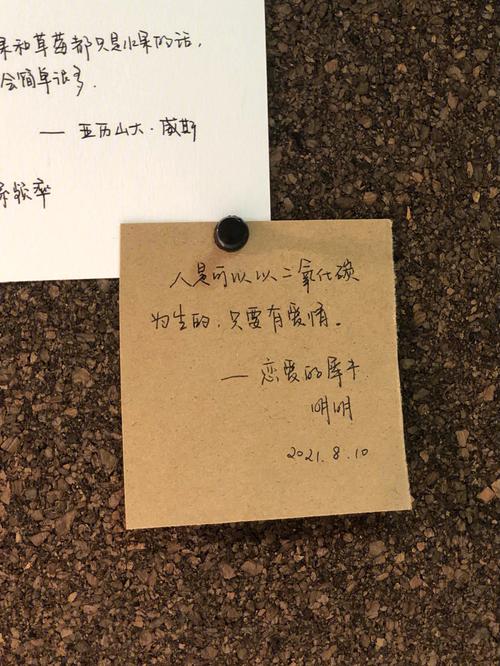 果和草莓都只是水果的话,
会简单很多.
— 亚历山大·威斯
人是可以以二氧化碳
为生的,只要有爱情。
— 恋爱的犀牛
明明
2021.8.10